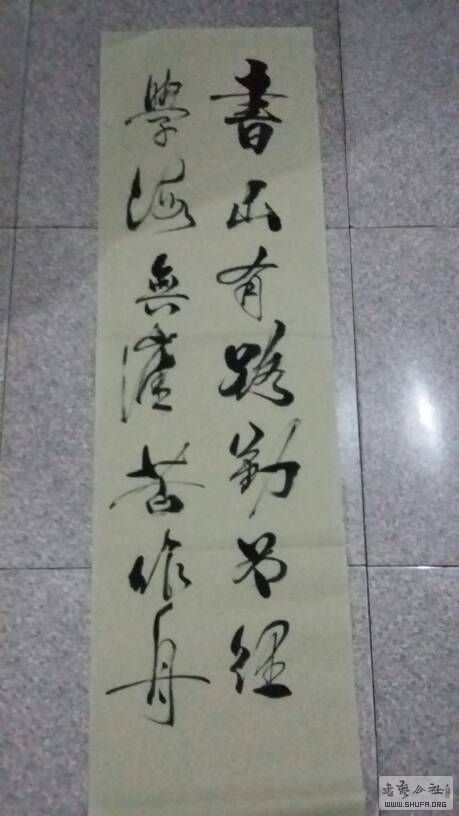 書山有路勤为径
學海無涯苦作舟
書藝公社
WWW.SHUFA.ORG